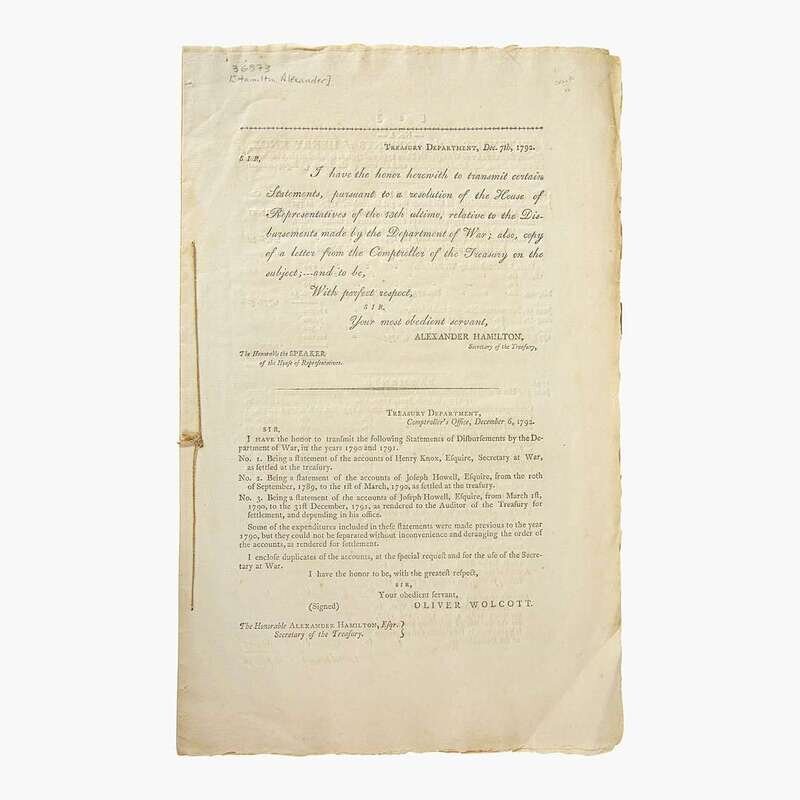 36973
[Hamilton Alexander]
TREASURY DEPARTMENT, Dec. 7th, 1792.
SIR,
I have the honor herewith to transmit certain
Statements, pursuant to a resolution of the House of
Representatives of the 13th ultimo, relative to the Dis-
bursements made by the Department of War; also, copy
of a letter from the Comptroller of the Treasury on the
subject;---and to be,
With perfect respect,
SIR,
Your most obedient servant,
ALEXANDER HAMILTON,
Secretary of the Treasury,
The Honorable the SPEAKER
of the House of Representatives.
TREASURY DEPARTMENT,
Comptroller's Office, December 6, 1792.
SIR,
I HAVE the honor to tranſmit the following Statements of Diſburſements by the De-
partment of War, in the years 1790 and 1791.
No. 1. Being a ſtatement of the accounts of Henry Knox, Eſquire, Secretary at War,
as ſettled at the treaſury.
No. 2. Being a ſtatement of the accounts of Joſeph Howell, Eſquire, from the 10th
of September, 1789, to the 1ſt of March, 1790, as ſettled at the treaſury.
No. 3. Being a ſtatement of the accounts of Joſeph Howell, Eſquire, from March 1ſt,
1790, to the 31ſt December, 1791, as rendered to the Auditor of the Treaſury for
ſettlement, and depending in his office.
Some of the expenditures included in theſe ſtatements were made previous to the year
1790, but they could not be ſeparated without inconvenience and deranging the order of
the accounts, as rendered for ſettlement.
I encloſe duplicates of the accounts, at the ſpecial requeſt and for the uſe of the Secre-
tary at War.
I have the honor to be, with the greateſt reſpect,
SIR,
Your obedient ſervant,
(Signed) OLIVER WOLCOTT.
The Honorable ALEXANDER HAMILTON, Eſqr. }
Secretary of the Treaſury.